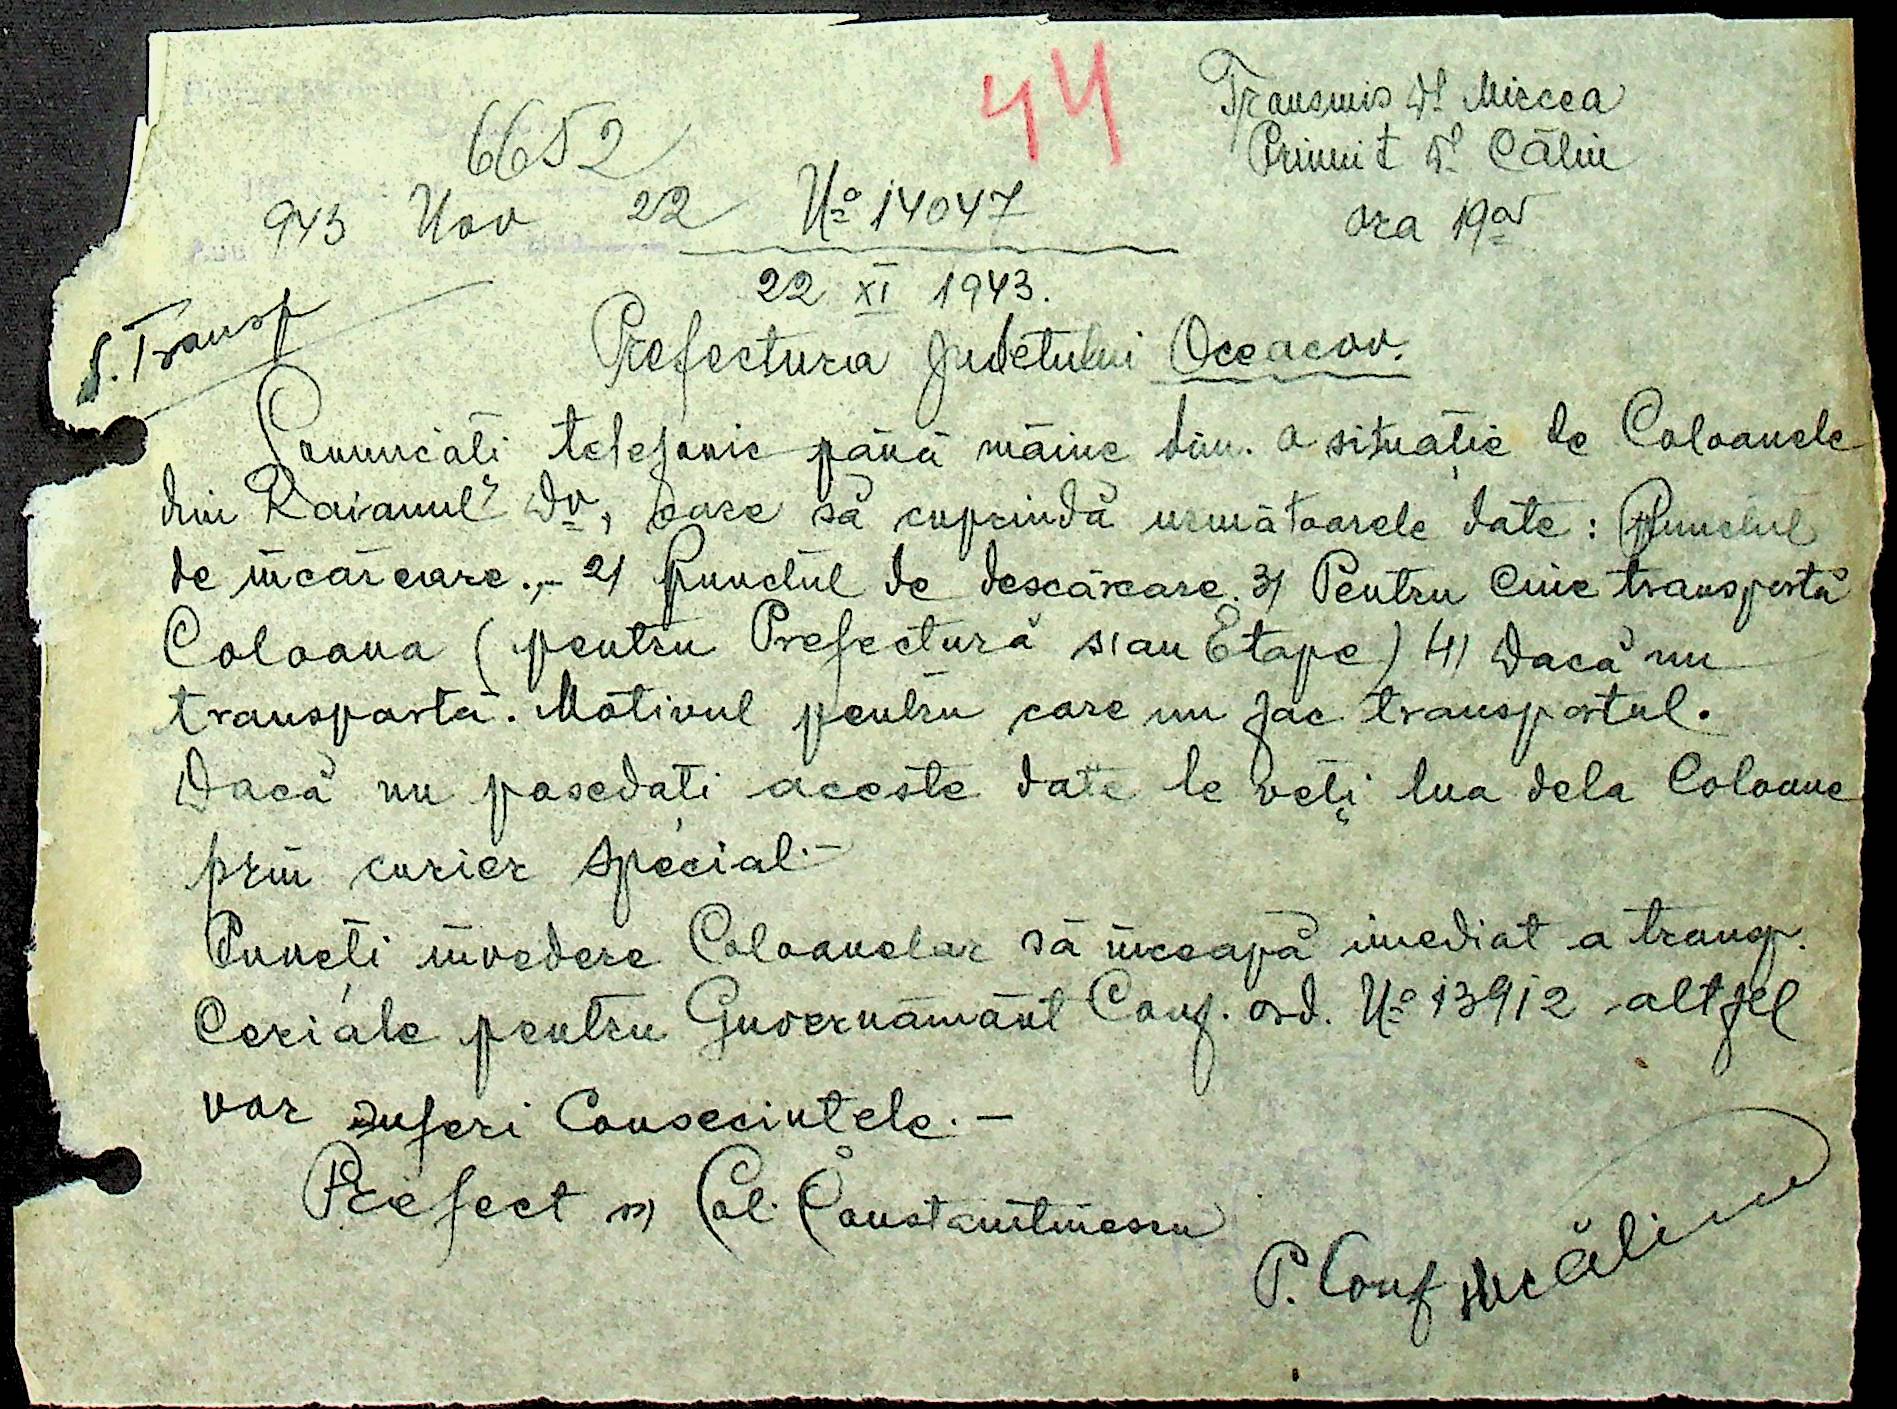 44
Transmis Dl Mircea
Primit Dl Călin
ora 19
6652
943 Nov 22 No 14047
22 XI 1943.
S. Transp
Prefectura Judetului Oceacov.
Comunicati telefonic până mâine dim. o situație de Coloanele
din Raionul Dv, care să cuprindă următoarele date: Punctul
de încărcare.,- 2) Punctul de descărcare. 3) Pentru cine transportă
Coloana (pentru Prefectură sau Etape) 4) Dacă nu
transportă. Motivul pentru care nu fac transportul.
Dacă nu posedați aceste date le veți lua dela Coloane
prin curier special.-
Puneți învedere Coloanelor să înceapă imediat a transp.
Ceriale pentru Guvernământ Conf. ord. No 13912 altfel
vor suferi Consecintele.-
Prefect ss) Col. Constantinescu
P. Conf Călin